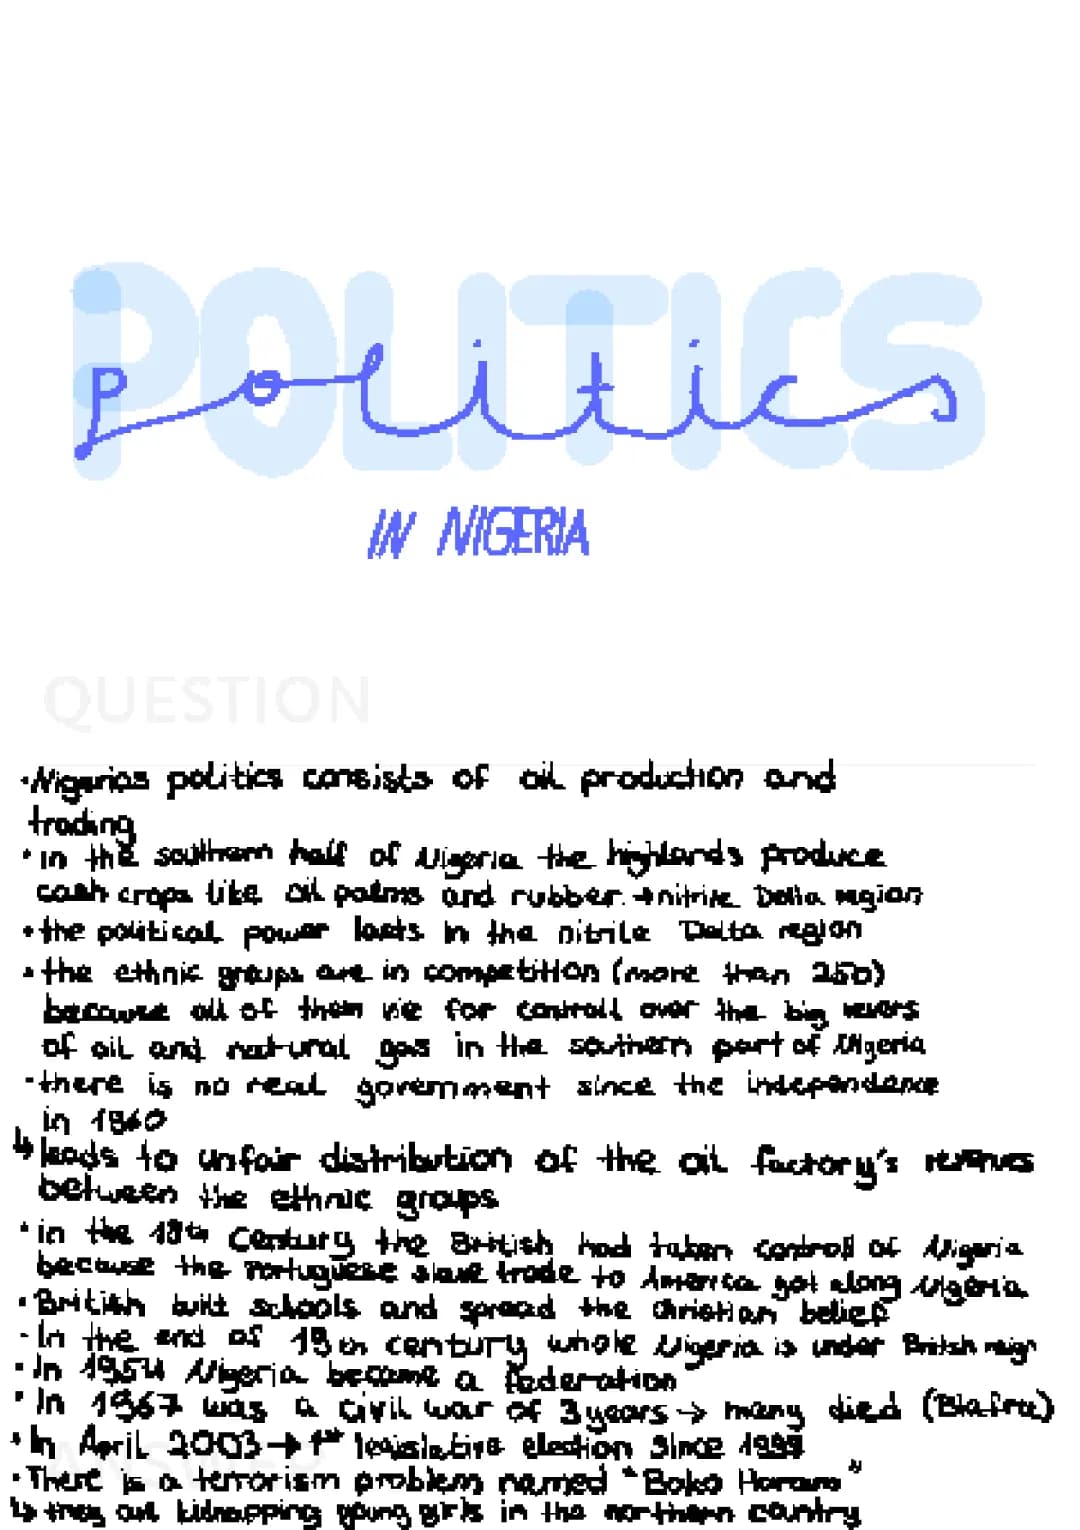 POLITICS
Politics
IN NIGERIA
QUESTION
·Nigerias politics consists of oil production and
trading
·in the southern half of Nigeria the highlands produce
cash crops like oil palms and rubber. Delta region
·the political power lasts in the nitrile Delta region
·the ethnic groups are in competition (more than 250)
because all of them vie for controll over the big
of oil and natural gas in the southern part of Nigeria
·there is no real government since the independance
in 1960
↳ leads to unfair distribution of the oil factory's revenues
between the ethnic groups
·in the century the British had taken controll of Nigeria
because the Portuguese slave trade to America got along Nigeria
·British built schools and spread the christian belief
·In the end of 19th century whole Nigeria is under British reign
·In 1954 Nigeria became a federation
·In 1967 was a civil war of 3 years → many died (Biafra)
·In April 2003 → 1st legislative election since 1999
·There is a terrorism problem named "Boko Harams"
↳ they are kidnapping young girls in the northern country
ANSWER